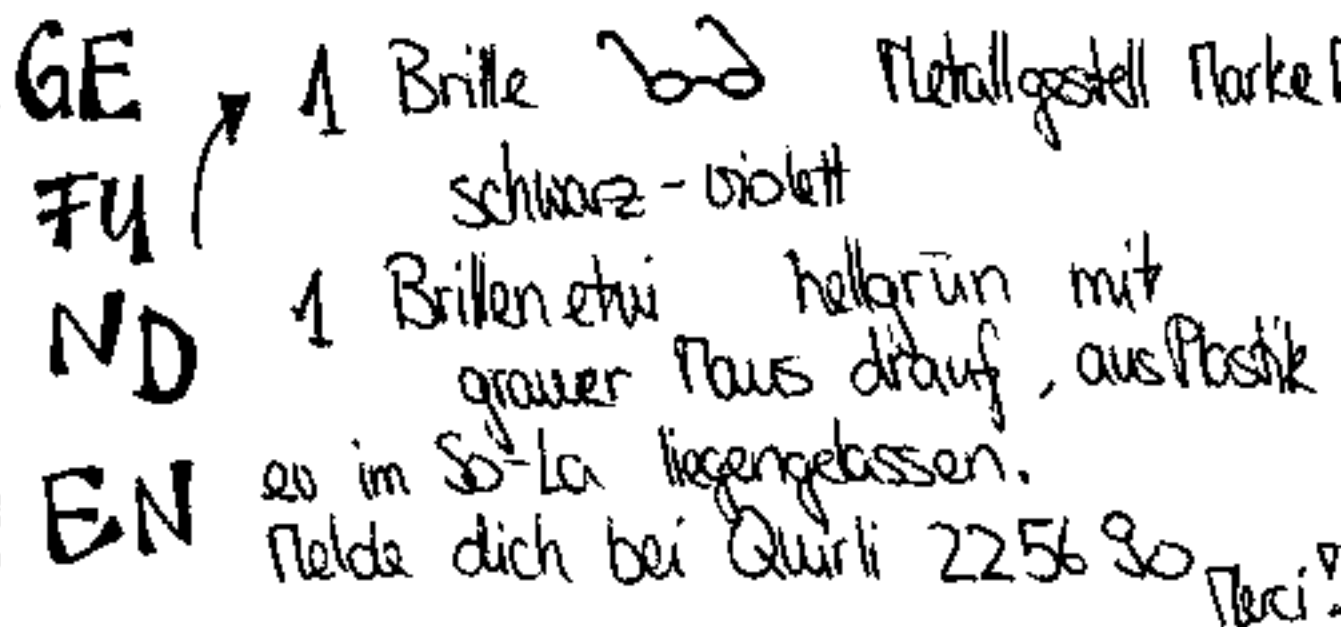 GE
FU
ND
EN
1 Brille Metallgestell Marke
schwarz-violett
1 Brillenetui hellgrün mit
grauer Maus drauf, aus Plastik
ev im So-La liegengelassen.
Melde dich bei Quirli 225690
Merci!